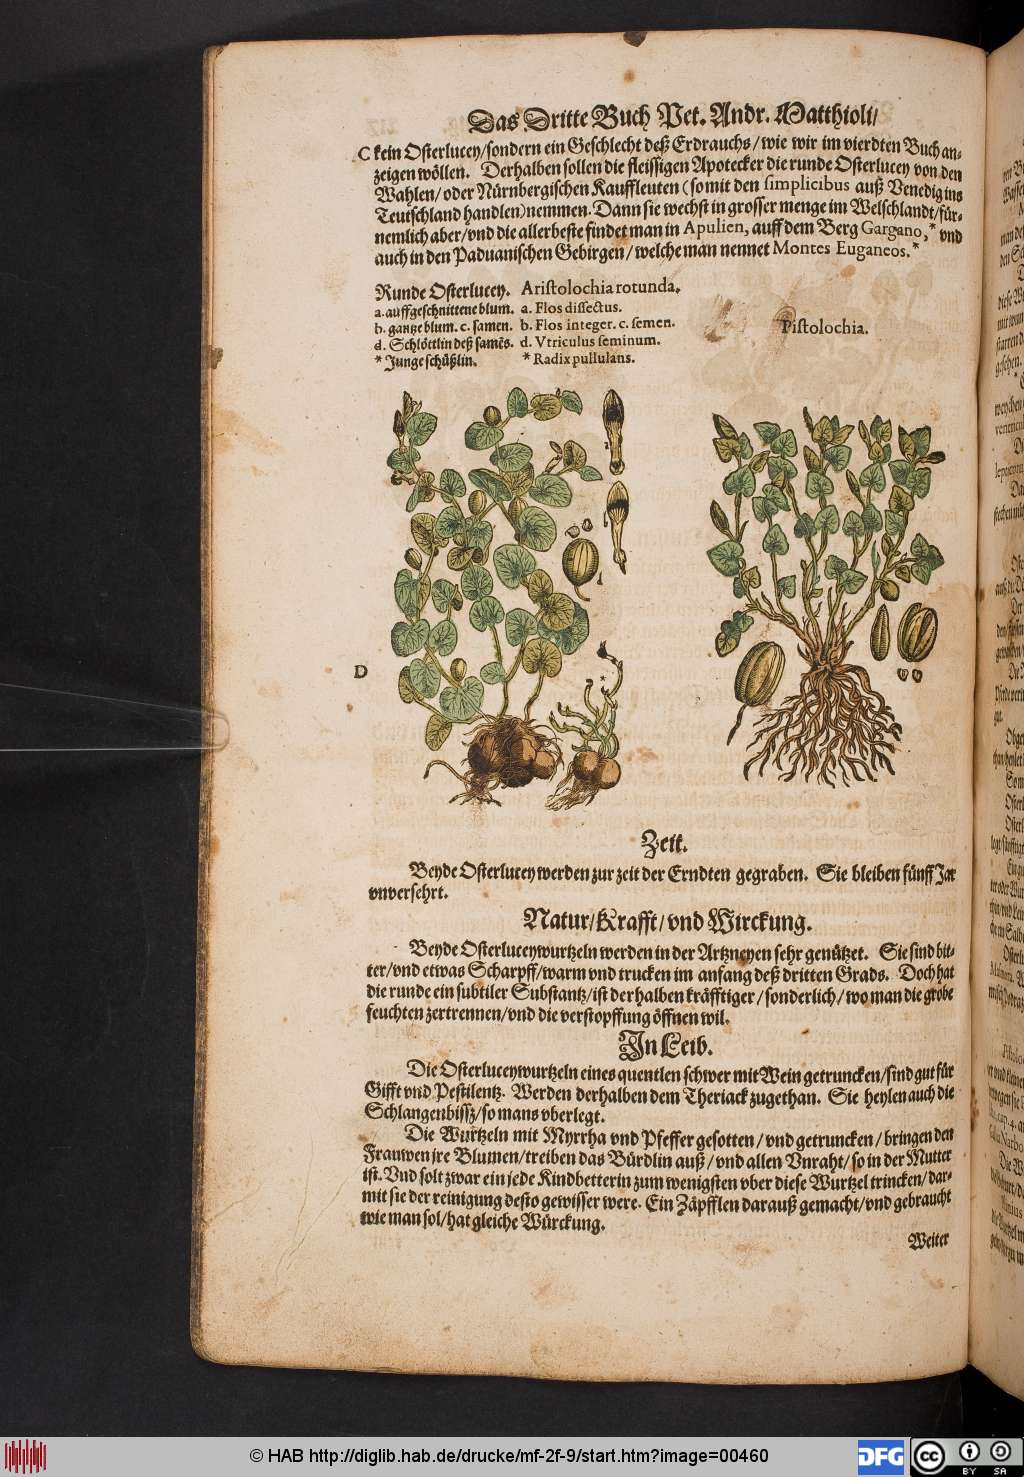 Das Dritte Buch Pet. Andr. Matthioli/
C kein Osterlucey/sondern ein Geschlecht deß Erdrauchs/wie wir im vierdten Buch an-
zeigen wöllen. Derhalben sollen die fleissigen Apotecker die runde Osterlucey von den
Wahlen/oder Nürnbergischen Kauffleuten (so mit den simplicibus auß Venedig ins
Teutschland handlen) nemmen. Dann sie wechst in grosser menge im Welschlandt/für-
nemlich aber/vnd die allerbeste findet man in Apulien, auff dem Berg Gargano,* vnd
auch in den Paduanischen Gebirgen/welche man nennet Montes Euganeos.*
Runde Osterlucey. Aristolochia rotunda.
a. auffgeschnittene blum. a. Flos dissectus.
b. gantze blum. c. samen. b. Flos integer. c. semen.
d. Schlöttlin deß samẽs. d. Vtriculus seminum.
* Junge schüßlin. * Radix pullulans.
Pistolochia.
D
Zeit.
Beyde Osterlucey werden zur zeit der Erndten gegraben. Sie bleiben fünff Jar
vnversehrt.
Natur/Krafft/vnd Wirckung.
Beyde Osterluceywurtzeln werden in der Artzneyen sehr genützet. Sie sind bit-
ter/vnd etwas Scharpff/warm vnd trucken im anfang deß dritten Grads. Doch hat
die runde ein subtiler Substantz/ist derhalben kräfftiger/sonderlich/wo man die grobe
feuchten zertrennen/vnd die verstopffung öffnen wil.
In Leib.
Die Osterluceywurtzeln eines quentlen schwer mit Wein getruncken/sind gut für
Gifft vnd Pestilentz. Werden derhalben dem Theriack zugethan. Sie heylen auch die
Schlangenbissz/so mans vberlegt.
Die Wurtzeln mit Myrrha vnd Pfeffer gesotten/vnd getruncken/bringen den
Frauwen jre Blumen/treiben das Bürdlin auß/vnd allen Vnraht/so in der Mutter
ist. Vnd solt zwar ein jede Kindbetterin zum wenigsten vber diese Wurtzel trincken/dar-
mit sie der reinigung desto gewisser were. Ein Zäpfflen darauß gemacht/vnd gebraucht
wie man sol/hat gleiche Würckung.
Weiter
© HAB http://diglib.hab.de/drucke/mf-2f-9/start.htm?image=00460
DFG
cc
BY SA